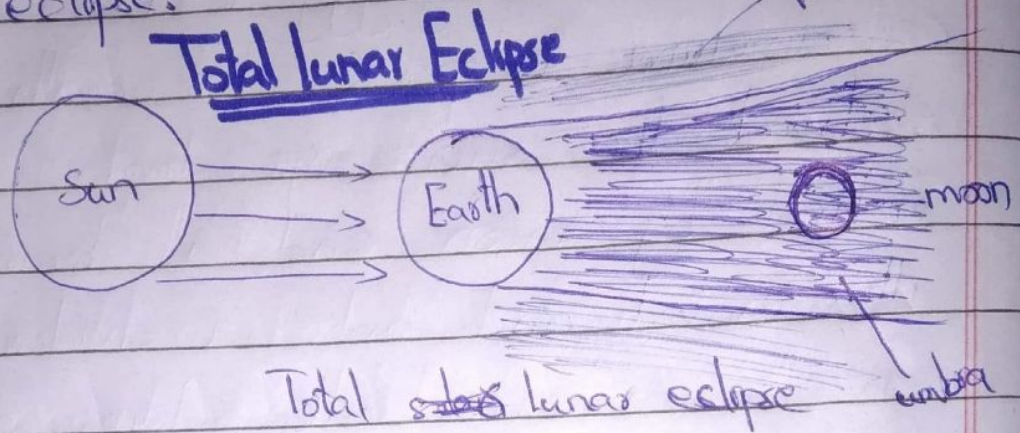 eclipse.
Total lunar Eclipse
Sun
Earth
moon
umbra
Total lunar eclipse